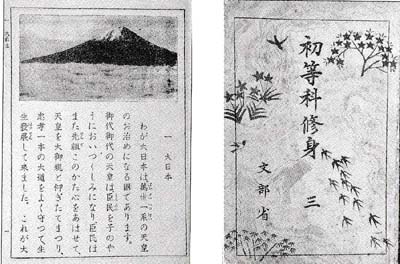 初等科修身 三
文部省
一 大日本
わが大日本は、萬世一系の天皇
のお治めになる國であります。
御代御代の天皇は、臣民を子のや
うにおいつくしみになり、臣民は
また先祖このかた心をあはせて、
天皇を大御親と仰ぎたてまつり、
忠孝一本の大道をよく守つて、生
生發展して來ました。これが大